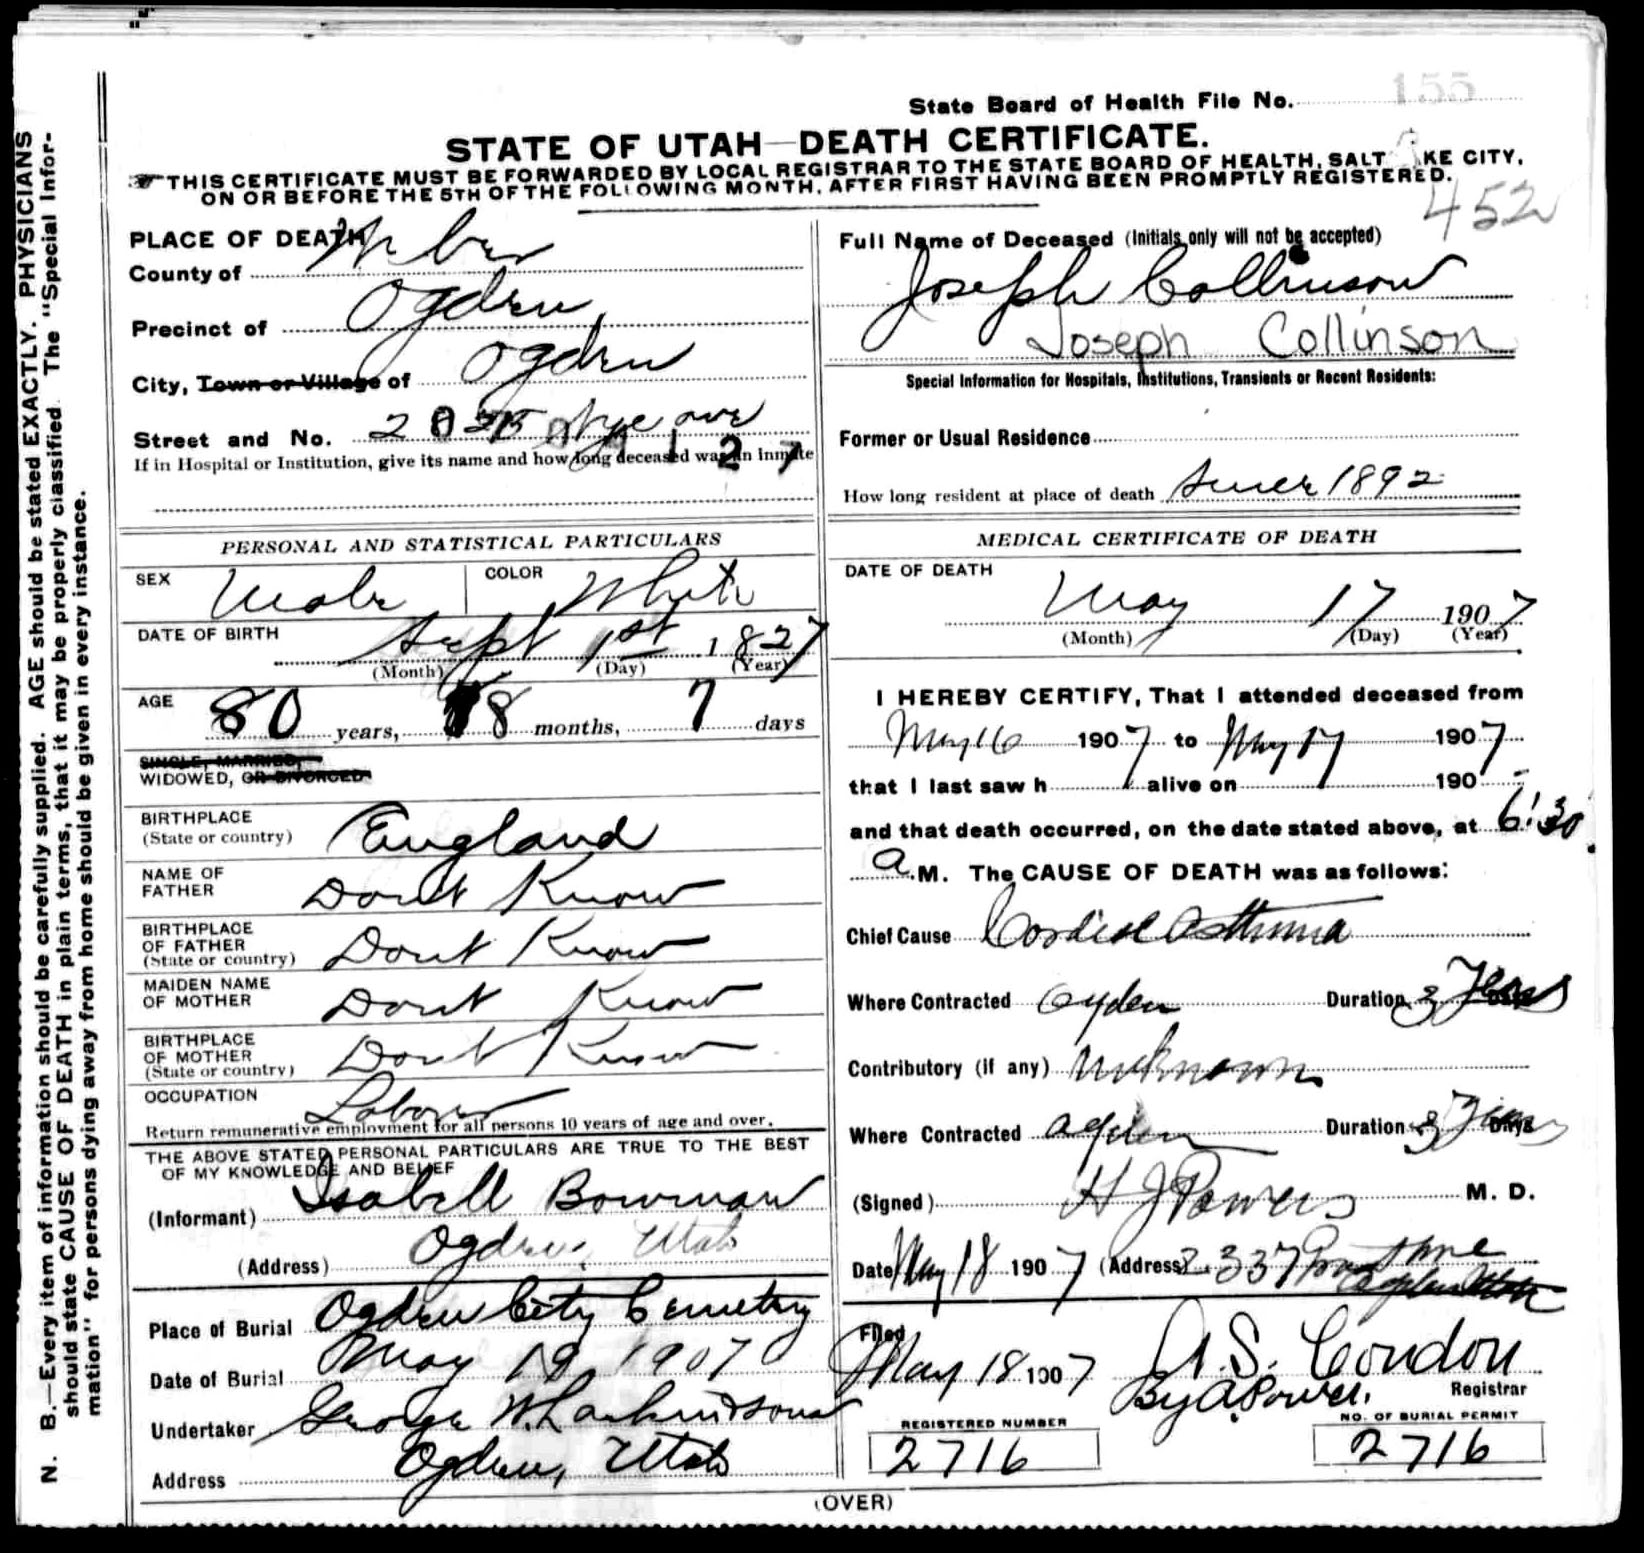 State Board of Health File No. 155
STATE OF UTAH—DEATH CERTIFICATE.
☞THIS CERTIFICATE MUST BE FORWARDED BY LOCAL REGISTRAR TO THE STATE BOARD OF HEALTH, SALT KE CITY,
ON OR BEFORE THE 5TH OF THE FOLLOWING MONTH, AFTER FIRST HAVING BEEN PROMPTLY REGISTERED.
452
N. B.—Every item of information should be carefully supplied. AGE should be stated EXACTLY. PHYSICIANS
should state CAUSE OF DEATH in plain terms, that it may be properly classified. The "Special Infor-
mation" for persons dying away from home should be given in every instance.
PLACE OF DEATH
County of Weber
Precinct of Ogden
City, Town or Village of Ogden
Street and No. ave
If in Hospital or Institution, give its name and how long deceased was an inmate
PERSONAL AND STATISTICAL PARTICULARS
SEX Male COLOR White
DATE OF BIRTH Sept 1st 1827
(Month) (Day) (Year)
AGE 80 years, 8 months, 7 days
SINGLE, MARRIED,
WIDOWED, OR DIVORCED
BIRTHPLACE
(State or country) England
NAME OF
FATHER Dont Know
BIRTHPLACE
OF FATHER
(State or country) Dont Know
MAIDEN NAME
OF MOTHER Dont Know
BIRTHPLACE
OF MOTHER
(State or country) Dont Know
OCCUPATION Laborer
Return remunerative employment for all persons 10 years of age and over.
THE ABOVE STATED PERSONAL PARTICULARS ARE TRUE TO THE BEST
OF MY KNOWLEDGE AND BELIEF
(Informant) Isabell Bowman
(Address) Ogden, Utah
Place of Burial Ogden City Cemetery
Date of Burial May 19, 1907
Undertaker George W. Larkin & Sons
Address Ogden, Utah
Full Name of Deceased (Initials only will not be accepted)
Joseph Collinson
Joseph Collinson
Special Information for Hospitals, Institutions, Transients or Recent Residents:
Former or Usual Residence
How long resident at place of death Since 1892
MEDICAL CERTIFICATE OF DEATH
DATE OF DEATH
May 17 1907
(Month) (Day) (Year)
I HEREBY CERTIFY, That I attended deceased from
May 16 1907 to May 17 1907
that I last saw h alive on 190
and that death occurred, on the date stated above, at 6:30
a.M. The CAUSE OF DEATH was as follows:
Chief Cause Cardiac Asthma
Where Contracted Ogden Duration 3 Years
Contributory (if any) Unknown
Where Contracted Ogden Duration 3 Days
(Signed) H J Powers M. D.
Date May 18 1907 (Address) 2337 Ave
Ogden Utah
Filed
May 18 1907 A. S. Condon
By A. Power. Registrar
REGISTERED NUMBER
2716
NO. OF BURIAL PERMIT
2716
(OVER)